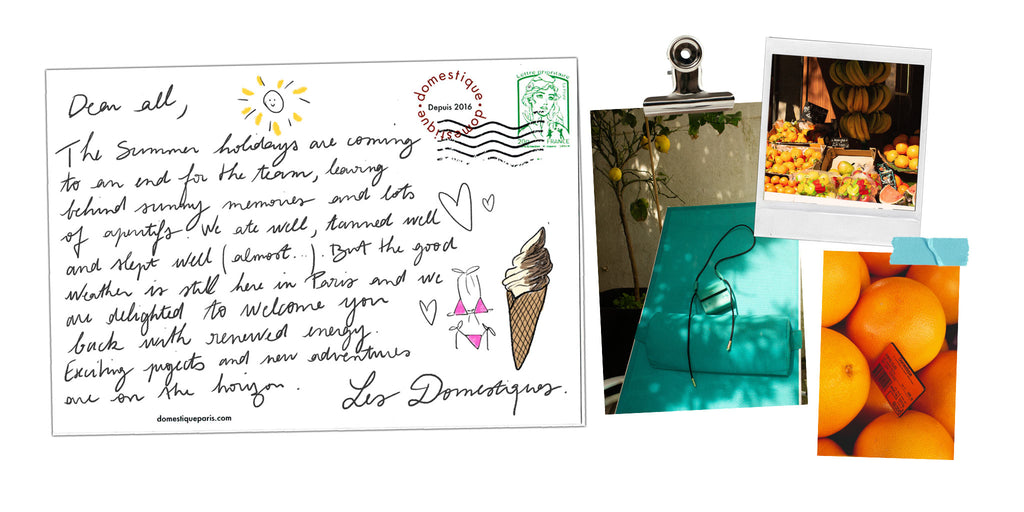 Dear all,
The Summer holidays are coming
to an end for the team, leaving
behind sunny memories and lots
of aperitifs. We ate well, tanned well
and slept well (almost...). But the good
weather is still here in Paris and we
are delighted to welcome you
back with renewed energy.
Exciting projects and new adventures
are on the horizon.
Les Domestiques.
domestiqueparis.com
domestique
Depuis 2016
domestique
Lettre prioritaire
FRANCE